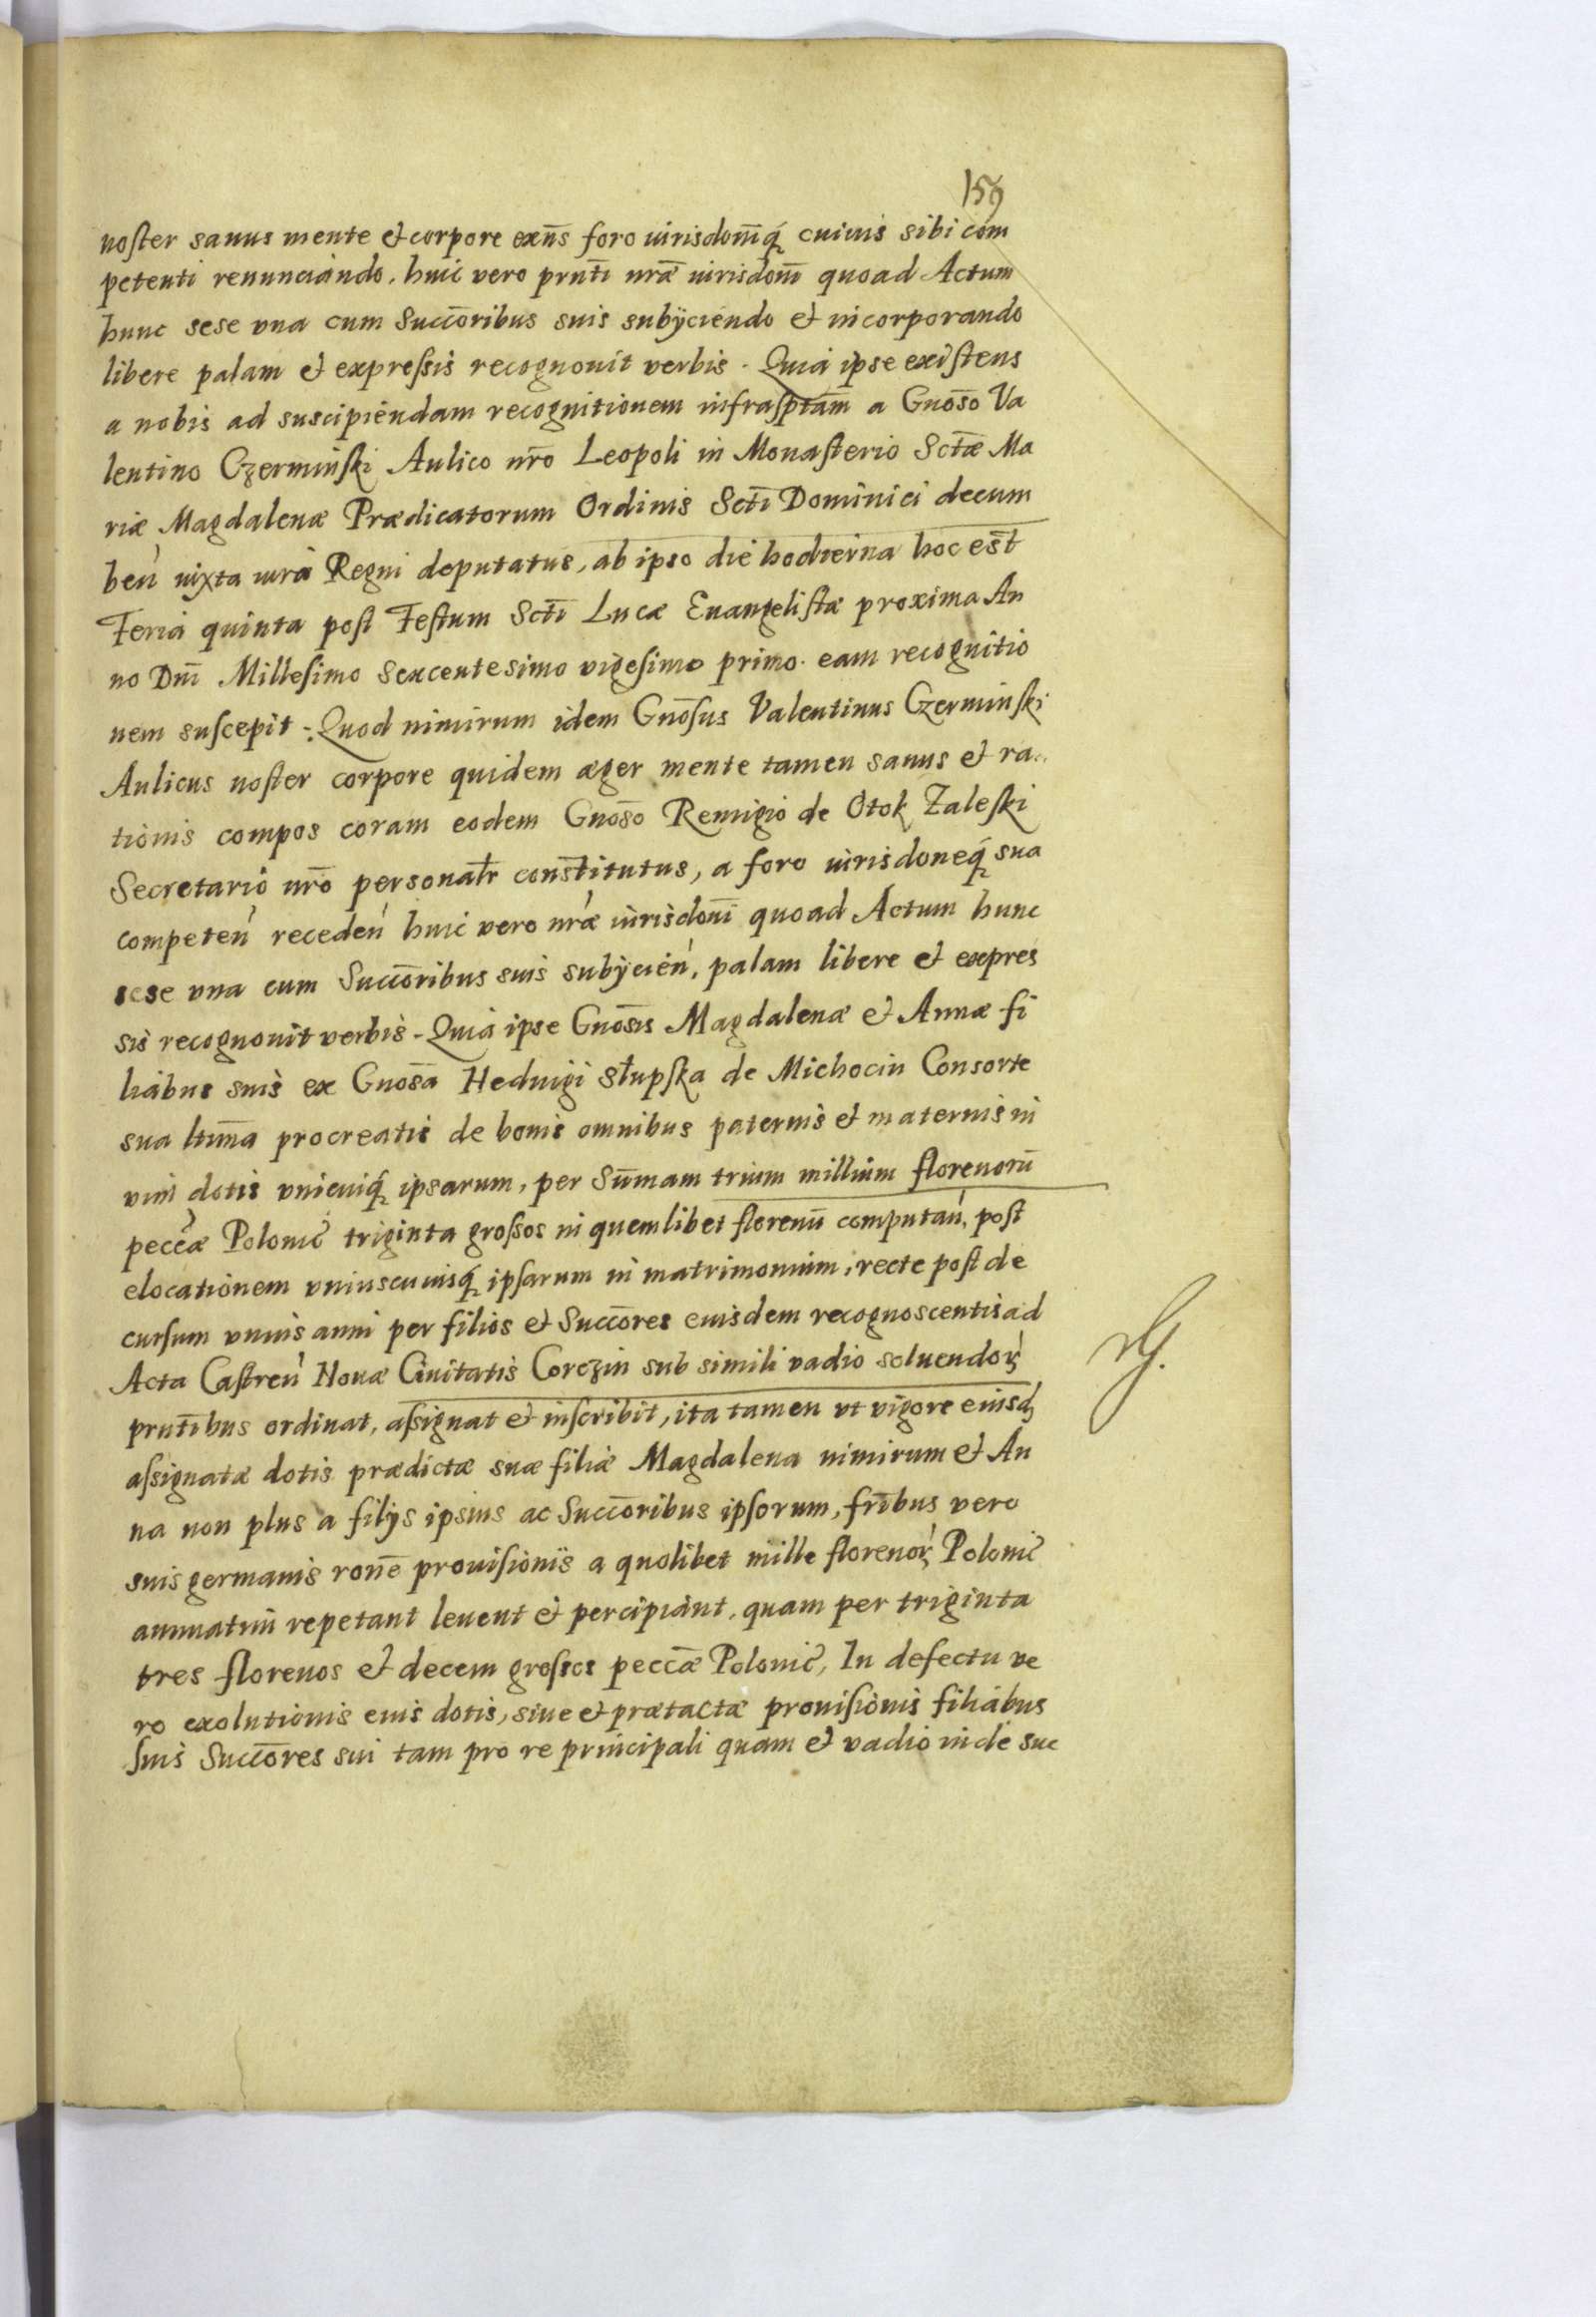 159
noster sanus mente et corpore exñs foro iurisdoniq́ cuiuis sibi com
petenti renunciando, huic vero prnti nr̃æ iurisdoni quoad Actum
hunc sese vna cum Succoribus suis subÿciendo et incorporando
libere palam et expressis recognouit verbis. Quia ipse existens
a nobis ad suscipiendam recognitionem infrasptam a Gnoso Va
lentino Czerminski Aulico nr̃o Leopoli in Monasterio Sctæ Ma
riæ Magdalenæ Prædicatorum Ordinis Scti Dominici decum
beń iuxta iura Regni deputatus, ab ipso die hodierna hoc est
Feria quinta post Festum Scti Lucæ Euangelistæ proxima An
no Dni Millesimo Sexcentesimo vigesimo primo. eam recognitio
nem suscepit: Quod nimirum idem Gnosus Valentinus Czerminski
Aulicus noster corpore quidem æger mente tamen sanus et ra
tionis compos coram eodem Gnoso Remigio de Otok Zaleski
Secretario nr̃o personalr constitutus, a foro iurisdoneq́ sua
competeń recedeń huic vero nr̃æ iurisdoni quoad Actum hunc
sese vna cum Succoribus suis subÿcień, palam libere et expres
sis recognouit verbis. Quia ipse Gnosis Magdalenæ et Annæ fi
liabus suis ex Gnosa Heduigi Słupska de Michocin Consorte
sua ltima procreatis de bonis omnibus paternis et maternis in
vim dotis vnicuiq́ ipsarum, per Sum̃am trium millium florenorũ
peccæ Polonic̃ triginta grossos in quemlibet florenũ computań, post
elocationem vniuscuiusq́ ipsarum in matrimonium, recte post de
cursum vnius anni per filios et Succores eiusdem recognoscentis ad
Acta Castreń Nouæ Ciuitatis Corczin sub simili vadio soluendoꝝ
prntibus ordinat, assignat et inscribit, ita tamen vt vigore eiusd
assignatæ dotis prædictæ suæ filiæ Magdalena nimirum et An
na non plus a filijs ipsius ac Succoribus ipsorum, fribus vero
suis germanis rone prouisionis a quolibet mille florenoꝝ Polonic̃
annuatim repetant leuent et percipiant, quam per triginta
tres florenos et decem grossos peccæ Polonic̃, In defectu ve
ro exolutionis eius dotis, siue et prætactæ prouisionis filiabus
suis Succores sui tam pro re principali quam et vadio inde suc